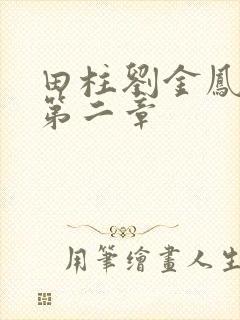 田柱劉金鳳
第二章
用筆繪畫人生